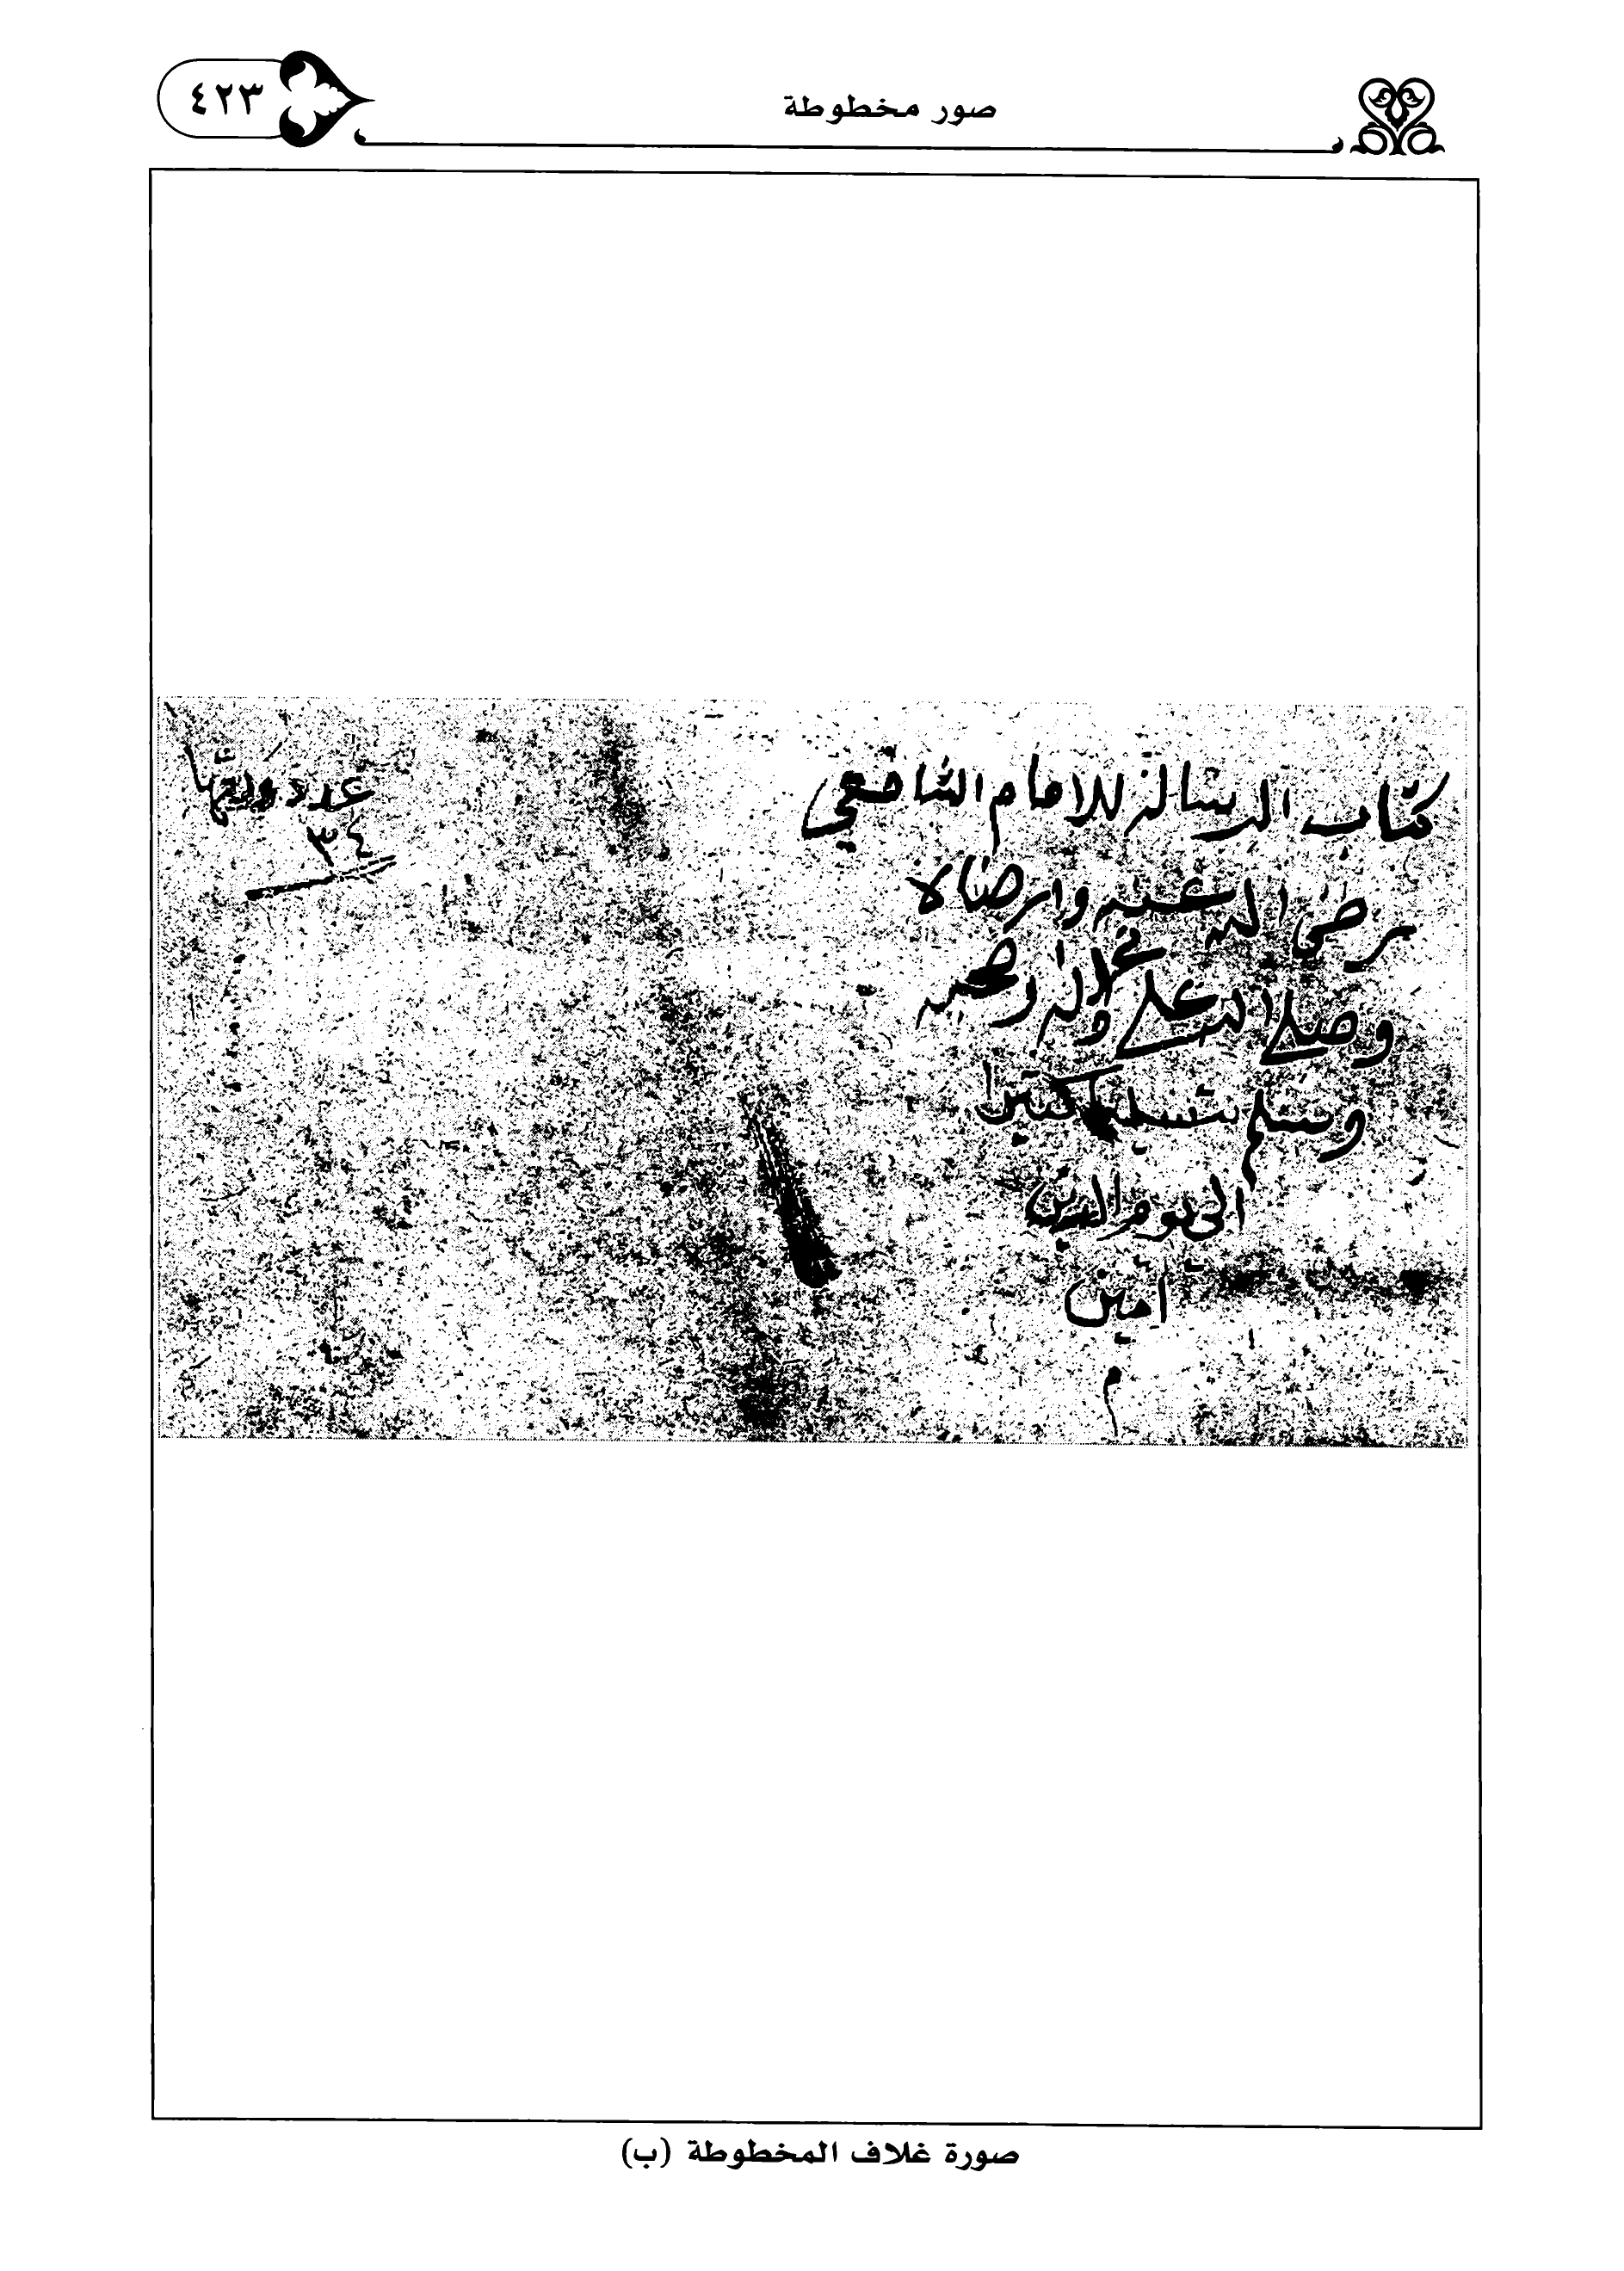 صور مخطوطة
٤٢٣
كتاب الرسالة للامام الشافعي
رضي الله عنه وارضاه
وصلى الله على محمد واله وصحبه
وسلم تسليما كثيرا
الى يوم الدين
امين
م
عدد
٣٤
صورة غلاف المخطوطة (ب)